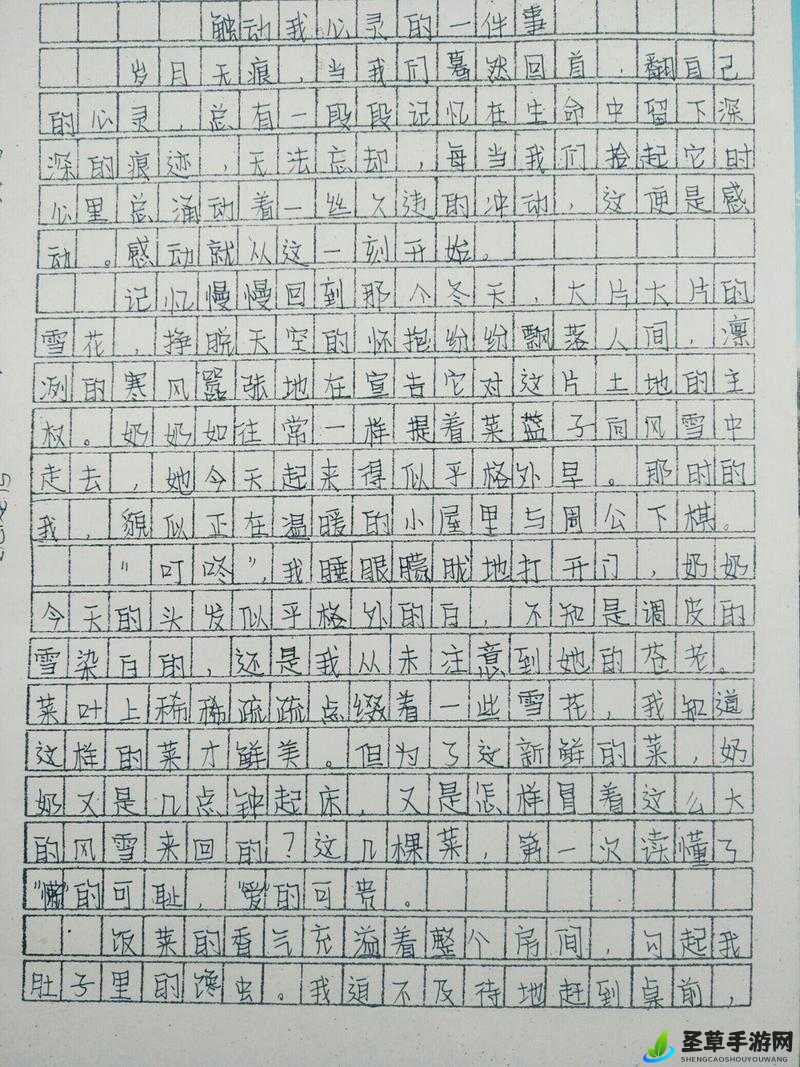 触动我心灵的一件事
岁月无痕，当我们蓦然回首，翻自己
的心灵，总有一段段记忆在生命中留下深
深的痕迹，无法忘却，每当我们捡起它时
心里总涌动着一丝久违的冲动，这便是感
动。感动就从这一刻开始。
记忆慢慢回到那个冬天，大片大片的
雪花，挣脱天空的怀抱纷纷飘落人间，凛
冽的寒风嚣张地在宣告它对这片土地的主
权。奶奶如往常一样提着菜篮子向风雪中
走去，她今天起来得似乎格外早。那时的
我，貌似正在温暖的小屋里与周公下棋。
“叮咚”，我睡眼朦胧地打开门，奶奶
今天的头发似乎格外的白，不知是调皮的
雪染白的，还是我从未注意到她的苍老。
菜叶上稀稀疏疏点缀着一些雪花，我知道
这样的菜才鲜美。但为了这新鲜的菜，奶
奶又是几点钟起床，又是怎样冒着这么大
的风雪来回的？这几棵菜，第一次读懂了
“懒”的可耻，“爱”的可贵。
饭菜的香气充溢着整个房间，勾起我
肚子里的馋虫。我迫不及待地赶到桌前，
圣草手游网
SHENGCAOSHOUYOUWANG